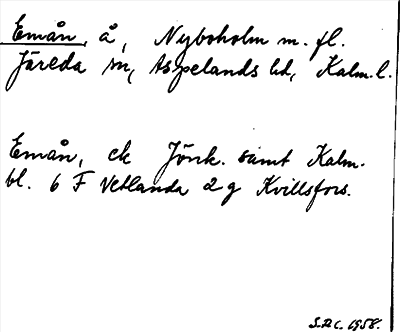 Emån, å, Nyboholm m. fl.
Järeda sn, Aspelands hd, Kalm. l.
Emån, ek Jönk. samt Kalm.
bl. 6 F Vetlanda 2 g Kvillsfors.
1958.